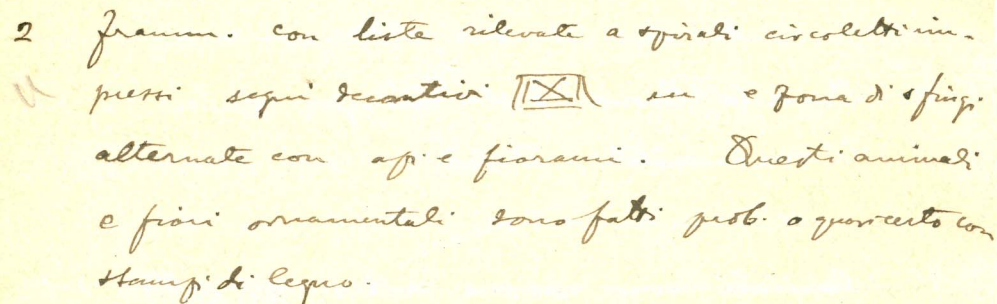 2 framm. con liste rilevate a spirali circoletti im-
pressi segni decorativi in e zona di sfingi
alternate con api e fiorami. Questi animali
e fiori ornamentali sono fatti prob. o quasi certo con
stampi di legno.